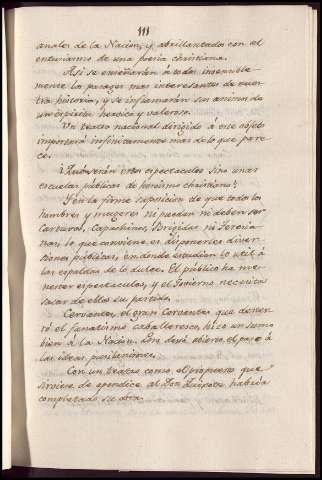 111
anales de la Nacion, y abrillantado con el
entusiasmo de una poesia christiana.
Asi se enseñarán á todos insensible-
mente los pasages mas interesantes de nues-
tra historia, y se inflamarán sus animos de
un espiritu heroico y valeroso.
Un teatro nacional dirigido á este objeto
importará infinitamente mas de lo que pare-
ce.
¿Qué serán estos espectaculos sino unas
escuelas públicas de heroismo christiano?
Yen la firme suposicion de que todos los
hombres y mugeres ni pueden ni deben ser
Cartuxos, Capuchinos, Brigidas ni Teresia-
nas, lo que conviene es disponerles diver-
siones públicas, en donde estudien lo util á
las espaldas de lo dulce. El público ha me-
nester espectaculos, y el Govierno necesita
sacar de ellos su partido.
Cervantes, el gran Cervantes que dester-
ró el fanatismo caballeresco, hizo un sumo
bien á la Nacion. Pero dexó abierto el paso á
las ideas
Con un teatro como el propuesto que
sirviese de apendice al Don Quixote, habria
completado su obra.